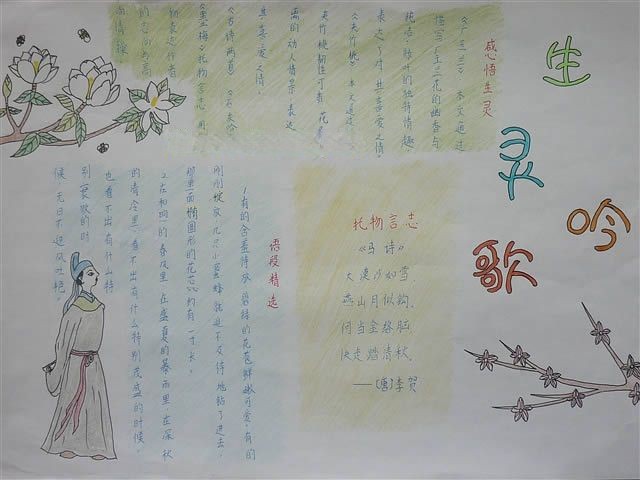 生灵吟歌
感悟生灵
《广玉兰》 本文通过
描写广玉兰花的幽香与
纯洁、叶片的独特情趣,
表达了对其喜爱之情。
《夹竹桃》 本文通过
夹竹桃韧性可贵、花影
离的动人情景 表达
其喜爱之情。
《古诗两首》 《石灰吟》
《墨梅》托物言志 用
物表达作者
的志向与高
尚情操
托物言志
《马 诗》
大漠沙如雪,
燕山月似钩。
何当金络脑
快走踏清秋。
——[唐]李贺
语段精选
1.有的含羞待放 碧绿的花苞鲜嫩可爱;有的
刚刚绽放 几只小蜜蜂就迫不及待地钻了进去,
那里面椭圆形的花芯约有一寸长。
2.在和煦的春风里 在盛夏的暴雨里 在深秋
的清冷里 看不出有什么特别茂盛的时候,
也看不出有什么特
别衰败的时
候,无日不迎风吐艳。